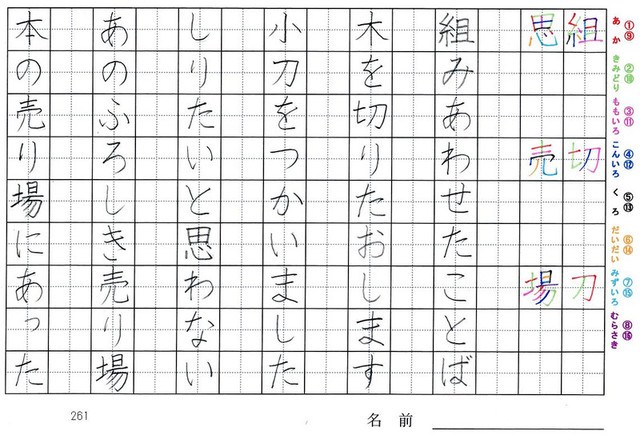 ①⑨ あか
②⑩ きみどり
③⑪ ももいろ
④⑫ こんいろ
⑤⑬ くろ
⑥⑭ だいだい
⑦⑮ みずいろ
⑧⑯ むらさき
組 切 刀
思 売 場
組みあわせたことば
木を切りたおします
小刀をつかいました
しりたいと思わない
あのふろしき売り場
本の売り場にあった
261
名前